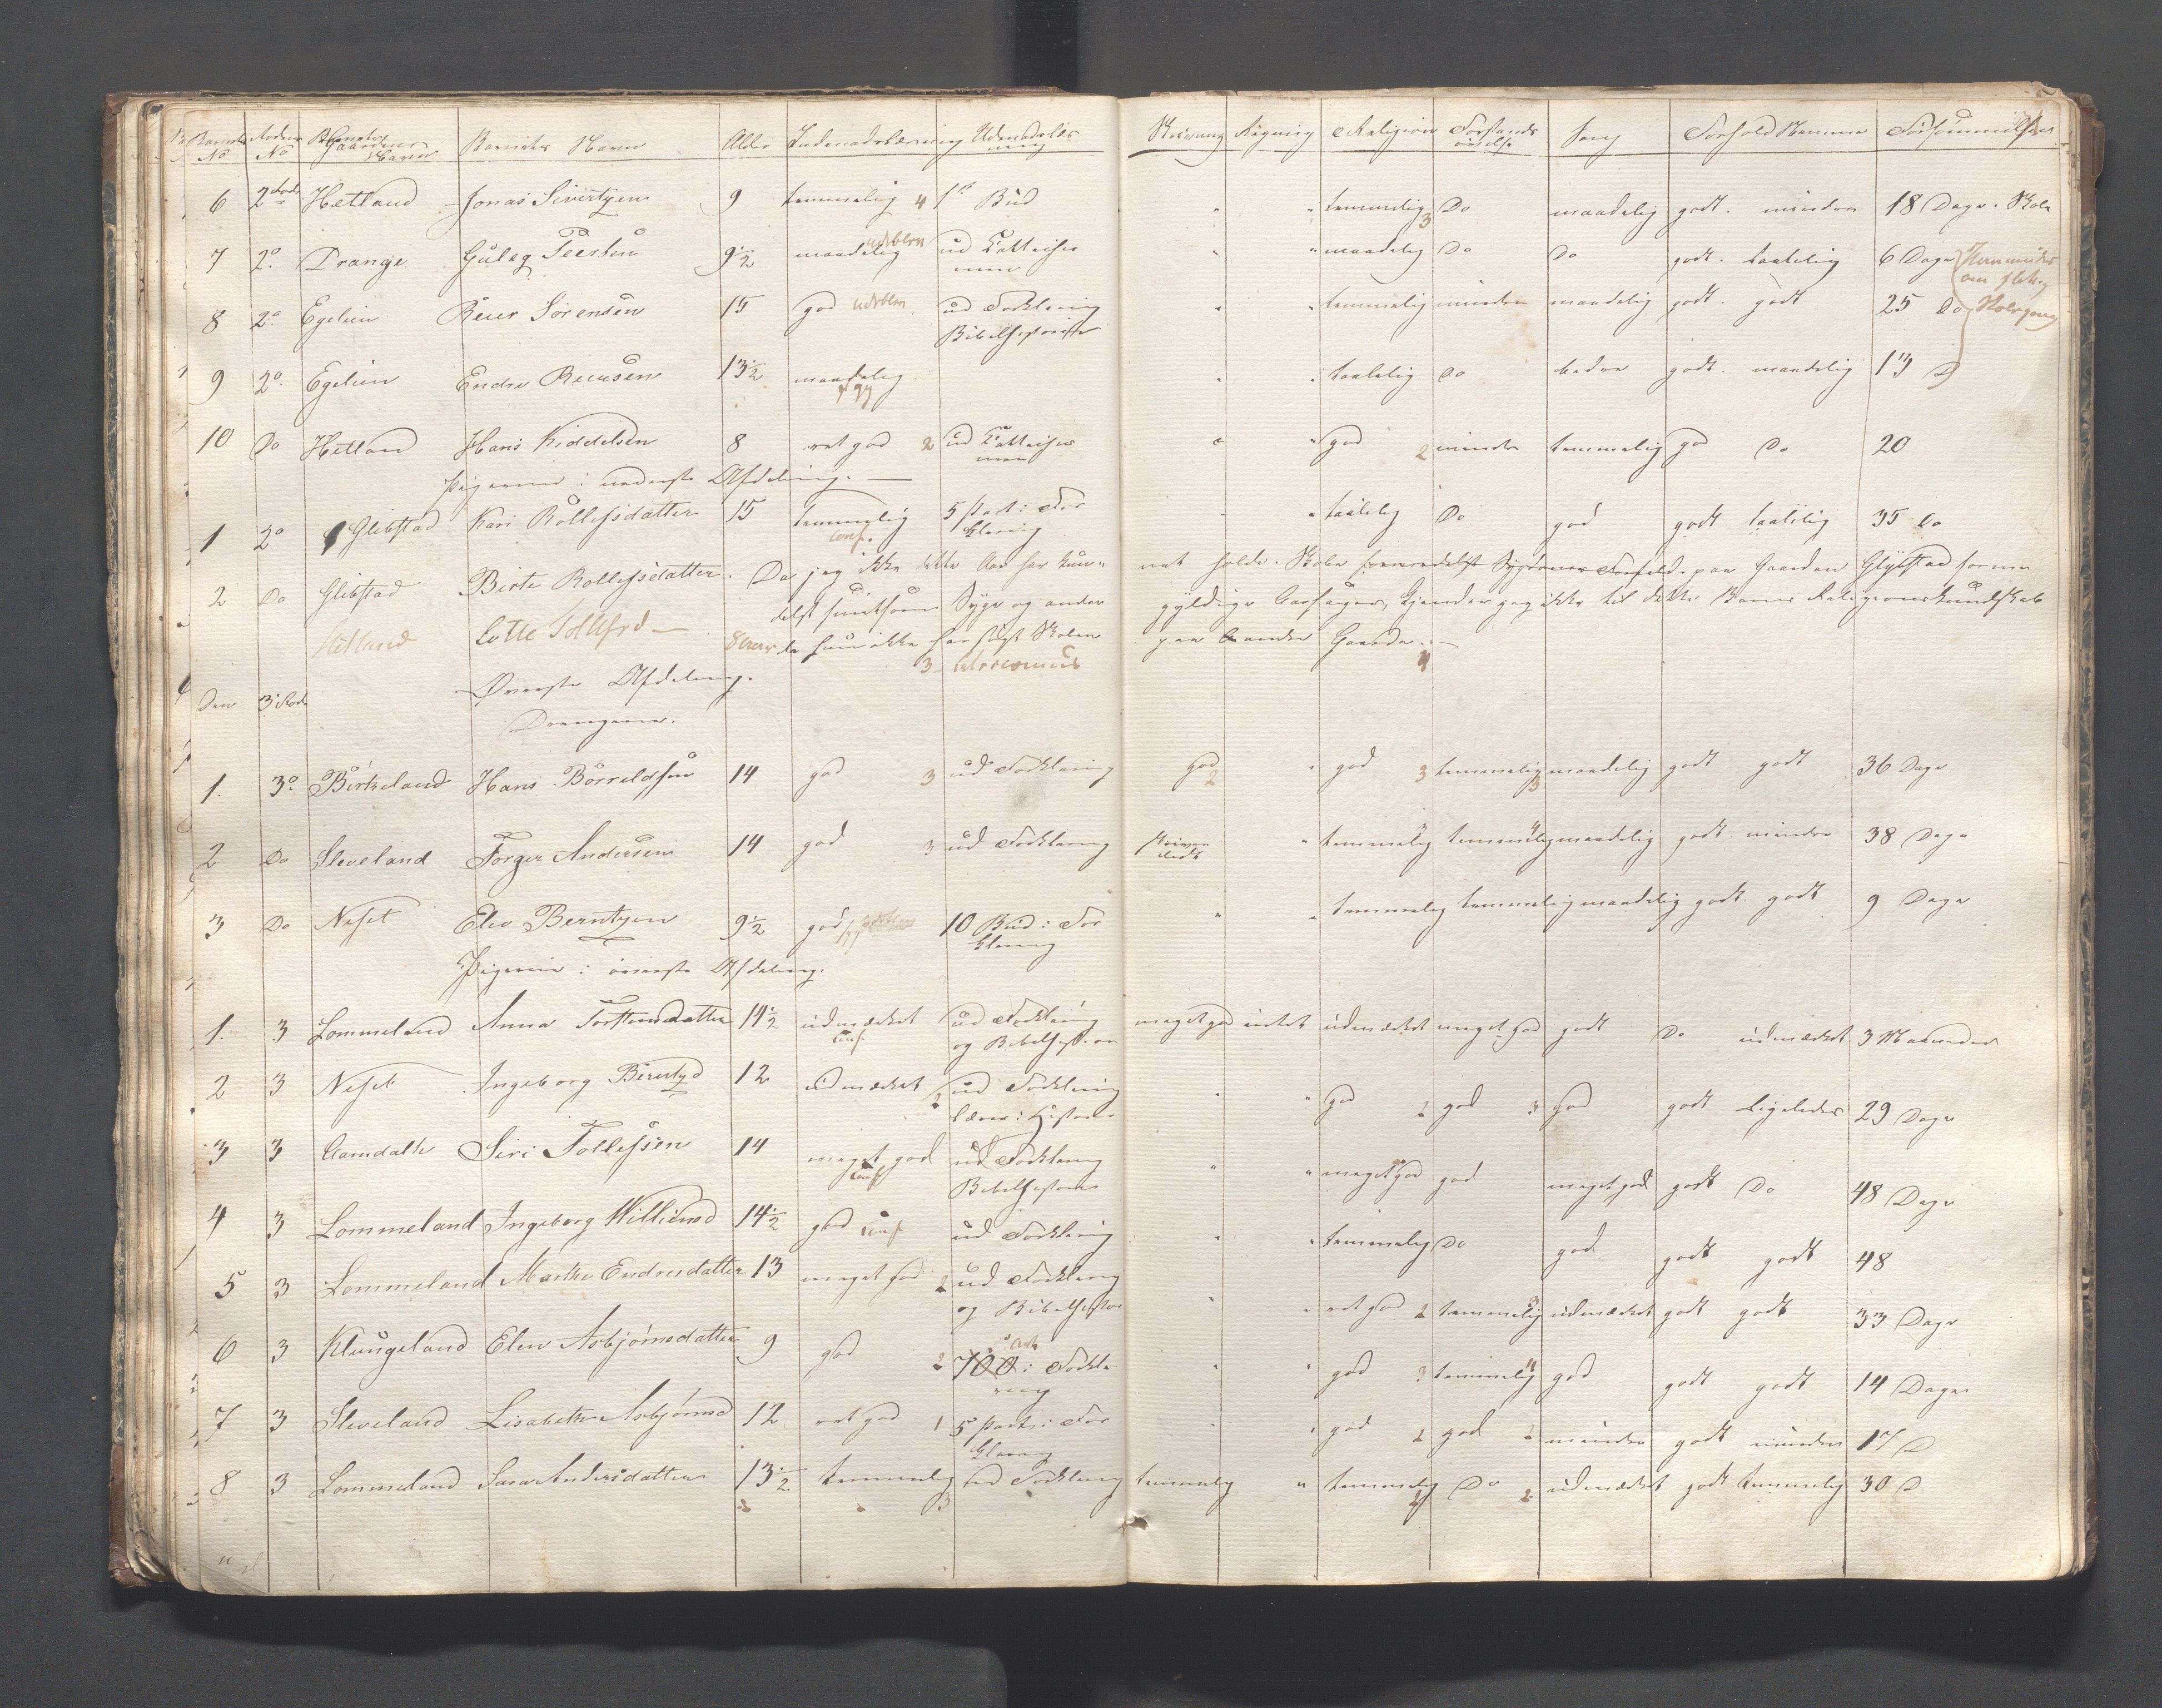 Barnets No Rodens No Gaardens Navn Barnets Navn Alder Indenadslæsning Udenadslæsning Skrivning Regning Religion Forstandsøvelse Sang Forhold Nemme Forsømmelser
6 2den Rode Hetland Jonas Sivertsen 9 temmelig 4 1ste Bud " " temmelig 3 Do maadelig godt. mindre 18 Dage. Skole
7 2o. Drange Guleg Peersen 9½ maadelig udeblev ud Cattechis " " maadelig Do Do godt. taalelig 6 Dage
men
8 2o. Egelien Reier Sörensen 15 god udeblev ud Forklaring " " temmelig mindre maadelig godt. godt 25 Do Skolegang
Bibelhistorie
9 2o. Egelien Endre Reiersen 13½ maadelig " " taalelig Do bedre godt. maadelig 13 D
10 Do Hetland Hans Kiddelsen 8 ret god 2 ud Cattechis " " god 2 mindre temmelig god Do 20
men
Pigerne i nederste Afdeling. —
1 2o Glibstad Kari Rollefsdatter 15 temmelig 5 Part i For " " taalelig Do god godt taalelig 35 Do
Conf. klaring
2 Do Glibstad Birte Rollefsdatter. Da jeg ikke dette Aar har kun- net holde Skole formedelst Sygdoms Forfald paa Gaarden Glibstad
delst smitsom Syge og andre gyldige Aarsager, kjender jeg ikke til dette Barns Religionskundskab
Hetland Lotte Tollefsd — 8 Aar da hun ikke har søgt Skolen paa andre Gaarde. —
3 4
Den 3die Rode Øverste Afdeling.
Drengene.
1. 3o Birkeland Hans Börreldsen 14 god 3 ud Forklaring god 2 " god 3 temmelig 3 maadelig godt godt 36 Dage
2 Do Sleveland Torger Andersen 14 god 3 ud Forklaring " temmelig 4 temmelig 4 maadelig godt. mindre 38 Dage
3 Do Neset Elev Berntsen 9½ god 10 Bud i For " " temmelig temmelig maadelig godt godt 9 Dage
klaring
Pigerne i överste Afdeling.
1. 3 Lommeland Anna Torstensdatter 14½ udmærket ud Forklaring meget god intet udmærket meget god godt Do udmærket 3 Maaneder
Conf. og Bibelhistorie
2 3 Neset Ingeborg Berntsd 12 udmærket 2 ud Forklaring " " god 2 god 3 god godt ligeledes 29 Dage
læser i Historie
3 3 Aamdalh Siri Tollefsen 14 meget god ud Forklaring " " meget god god meget god godt Do 48 Dage
Conf Bibelhistorie
4 3 Lommeland Ingeborg Williamsd 14½ god Conf ud Forklaring " " temmelig Do god godt godt 48
5 3 Lommeland Marthe Endresdatter 13 meget god 2 ud Forklaring " " ret god 2 temmelig 3 udmærket godt godt 33 Dage
og Bibelhistorie
6 3 Klungeland Elen Asbjörnsdatter 9 god 2 i Forkla " " god 3 temmelig 4 god godt godt 14 Dage
ring
7 3 Sleveland Lisabeth Asbjörnsd 12 ret god 1 5 Part i For " " god 2 god 2 mindre godt mindre 17 D
klaring
8 3 Lommeland Sara Andersdatter 13½ temmelig 3 ud Forklaring temmelig " temmelig 2 Do 2 udmærket godt temmelig 30 D